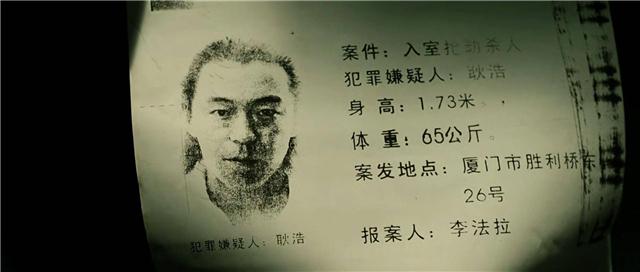 案件：入室抢劫杀人
犯罪嫌疑人：耿浩
身 高：1.73米。
体 重：65公斤。
案发地点：厦门市胜利桥东
26号
报案人：李法拉
犯罪嫌疑人：耿浩